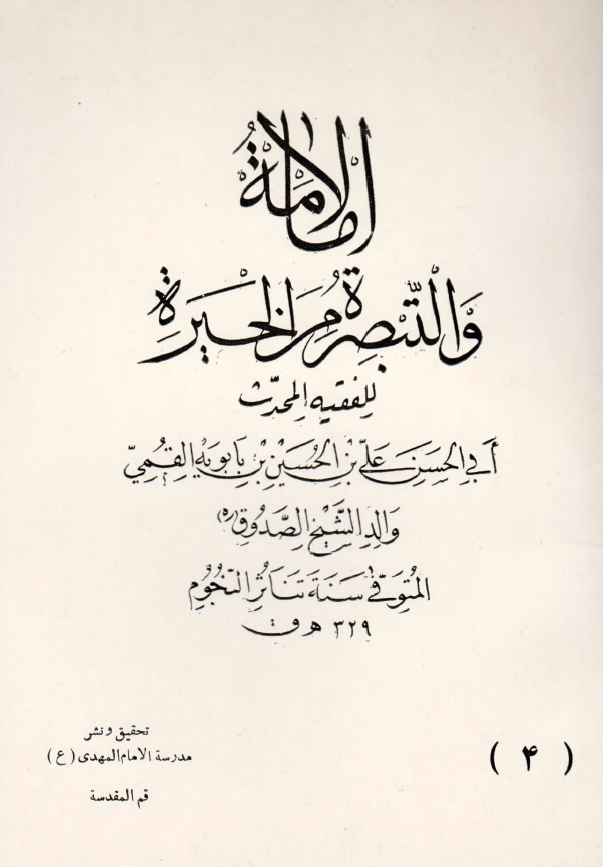 الإمامة
وَالتَّبْصِرَة مِنَ الحَيرَة
للفقيه المحدّث
أَبي الحسَن عَليّ بْن الحُسَين بْن بَابويَه القِمّيّ
وَالِد الشَّيْخ الصَّدُوق (ره)
المتوَفّى سَنَة تَنَاثُر النّجُوم
٣٢٩ ه ق
تحقيق ونشر
مدرسة الامام المهدى (ع)
قم المقدسة
( ۴ )